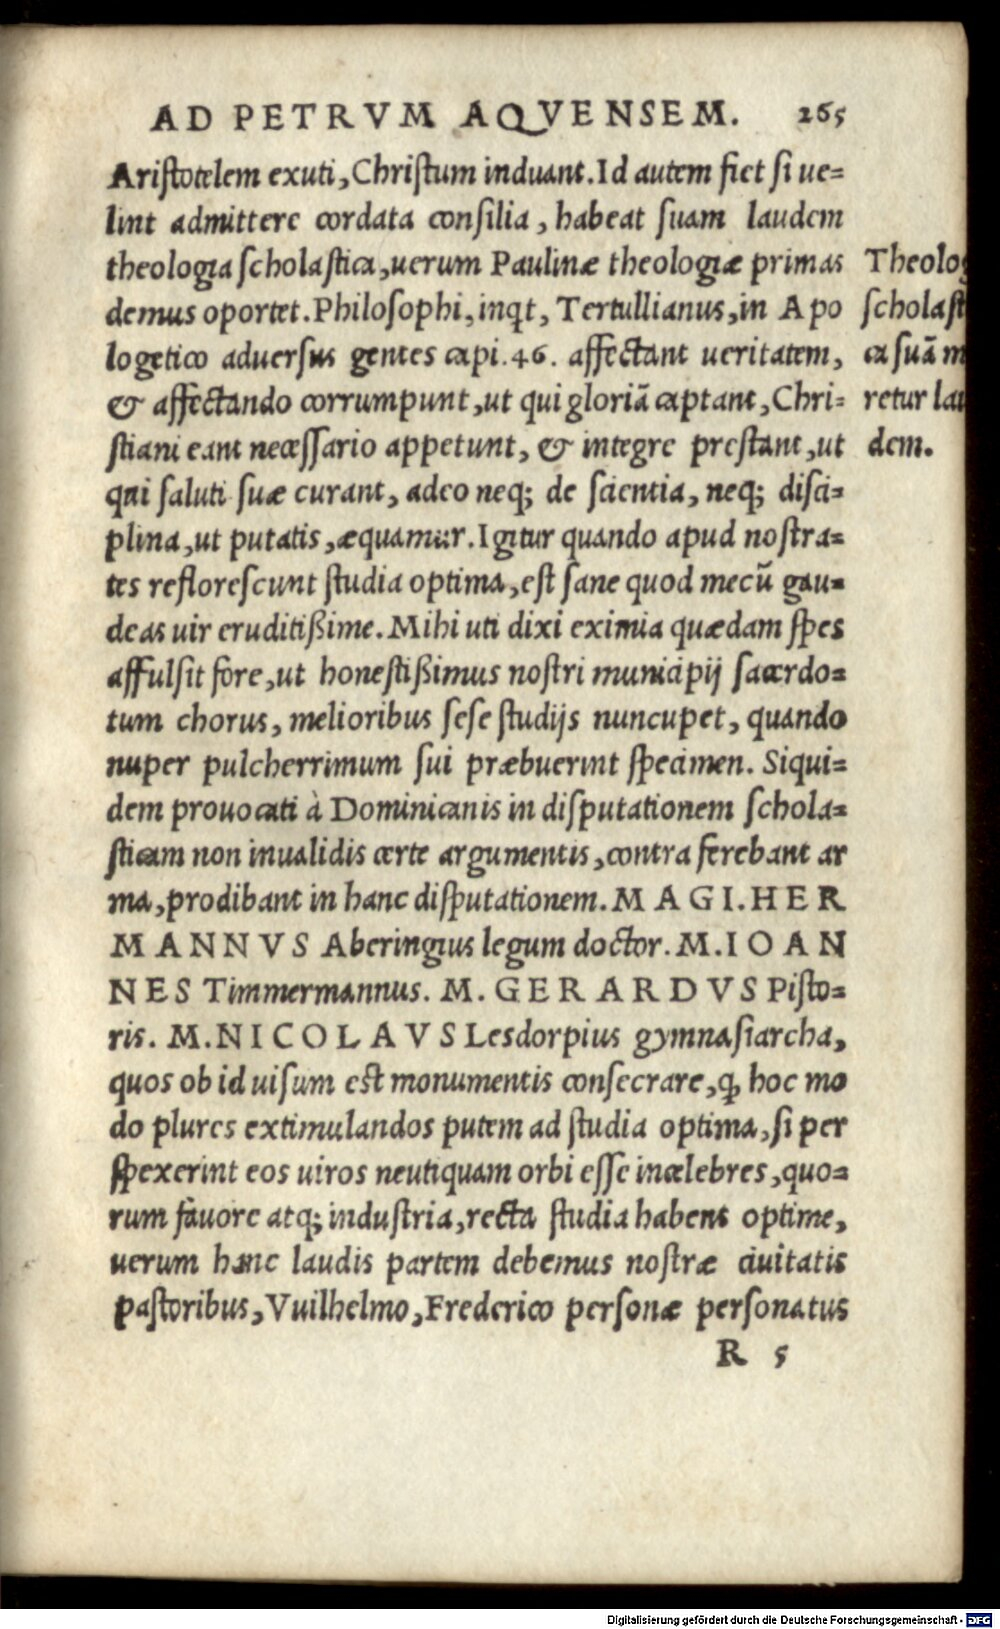 AD PETRVM AQVENSEM. 265
Aristotelem exuti, Christum induant. Id autem fiet si ue=
lint admittere cordata consilia, habeat suam laudem
theologia scholastica, uerum Paulinæ theologiæ primas
demus oportet. Philosophi, inqt, Tertullianus, in Apo
logetico aduersus gentes capi. 46. affectant ueritatem,
& affectando corrumpunt, ut qui gloriā captant, Chri=
stiani eant necessario appetunt, & integre prestant, ut
qui saluti suæ curant, adeo neq; de scientia, neq; disci=
plina, ut putatis, æquamur. Igitur quando apud nostra=
tes reflorescunt studia optima, est sane quod mecū gau=
deas uir eruditißime. Mihi uti dixi eximia quædam spes
affulsit fore, ut honestißimus nostri municipij sacerdo=
tum chorus, melioribus sese studijs nuncupet, quando
nuper pulcherrimum sui præbuerint specimen. Siqui=
dem prouocati à Dominicanis in disputationem schola=
sticam non inualidis certe argumentis, contra ferebant ar
ma, prodibant in hanc disputationem. MAGI. HER
MANNVS Aberingius legum doctor. M. IOAN
NES Timmermannus. M. GERARDVS Pisto=
ris. M. NICOLAVS Lesdorpius gymnasiarcha,
quos ob id uisum est monumentis consecrare, ꝙ hoc mo
do plures extimulandos putem ad studia optima, si per
spexerint eos uiros neutiquam orbi esse incelebres, quo=
rum fauore atq; industria, recta studia habent optime,
uerum hanc laudis partem debemus nostræ ciuitatis
pastoribus, Vuilhelmo, Frederico personæ personatus
R 5
Theolog
scholast
ca suā m
retur lau
dem.
Digitalisierung gefördert durch die Deutsche Forschungsgemeinschaft - DFG